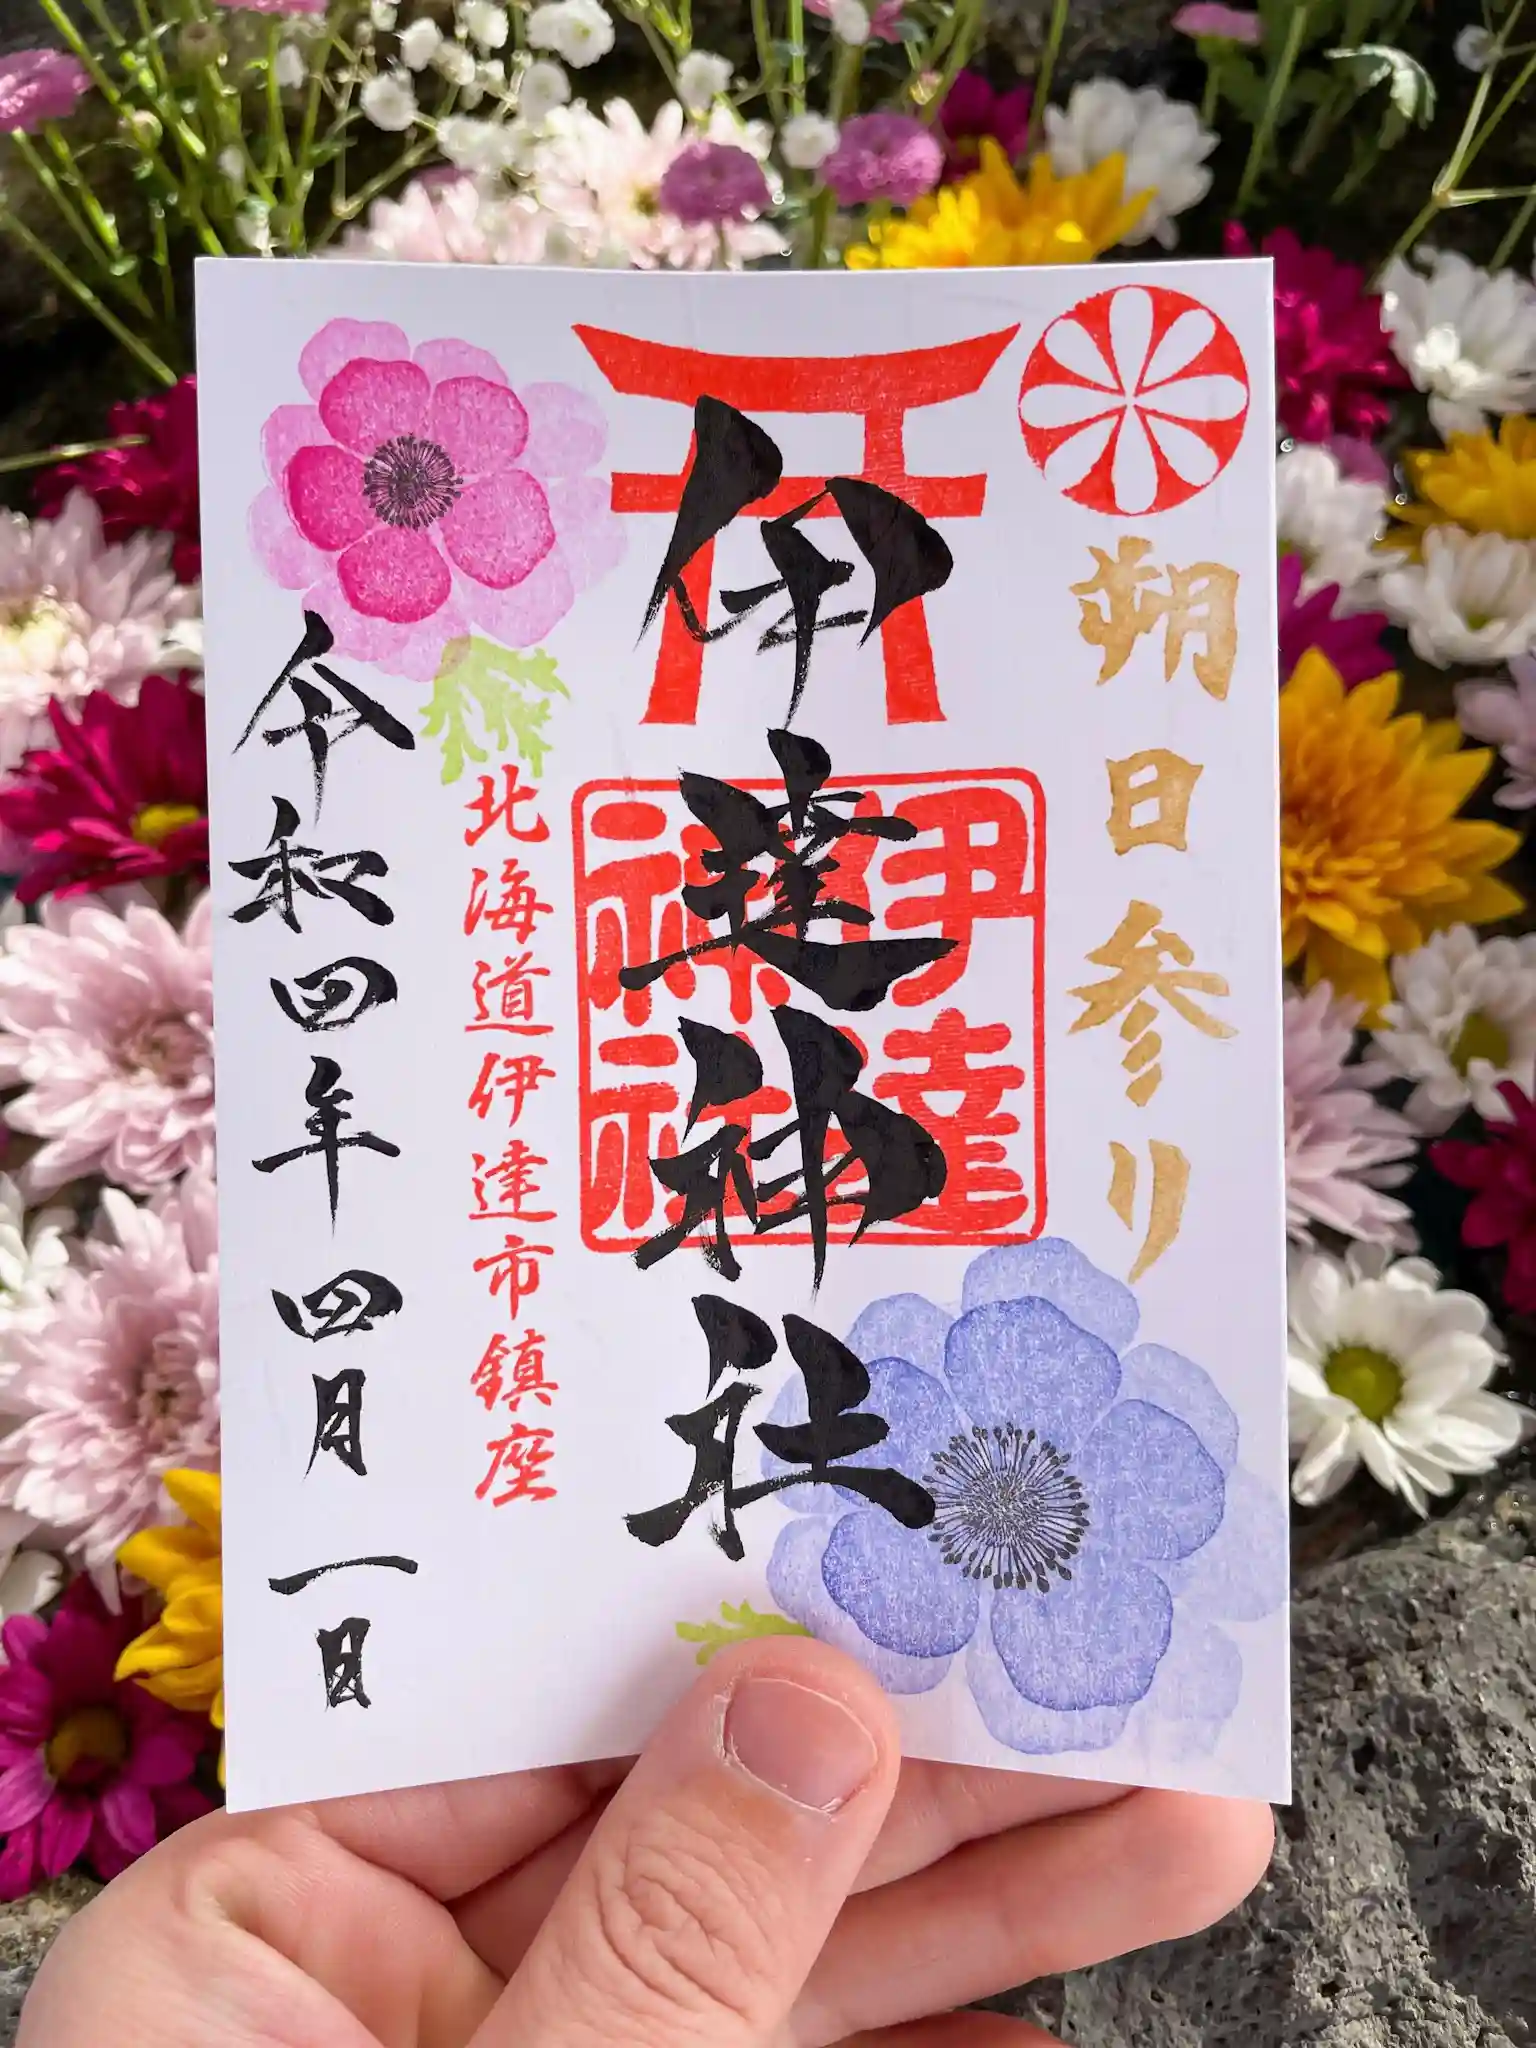 朔日参り
伊達神社
伊達
神社
北海道伊達市鎮座
令和四年四月一日